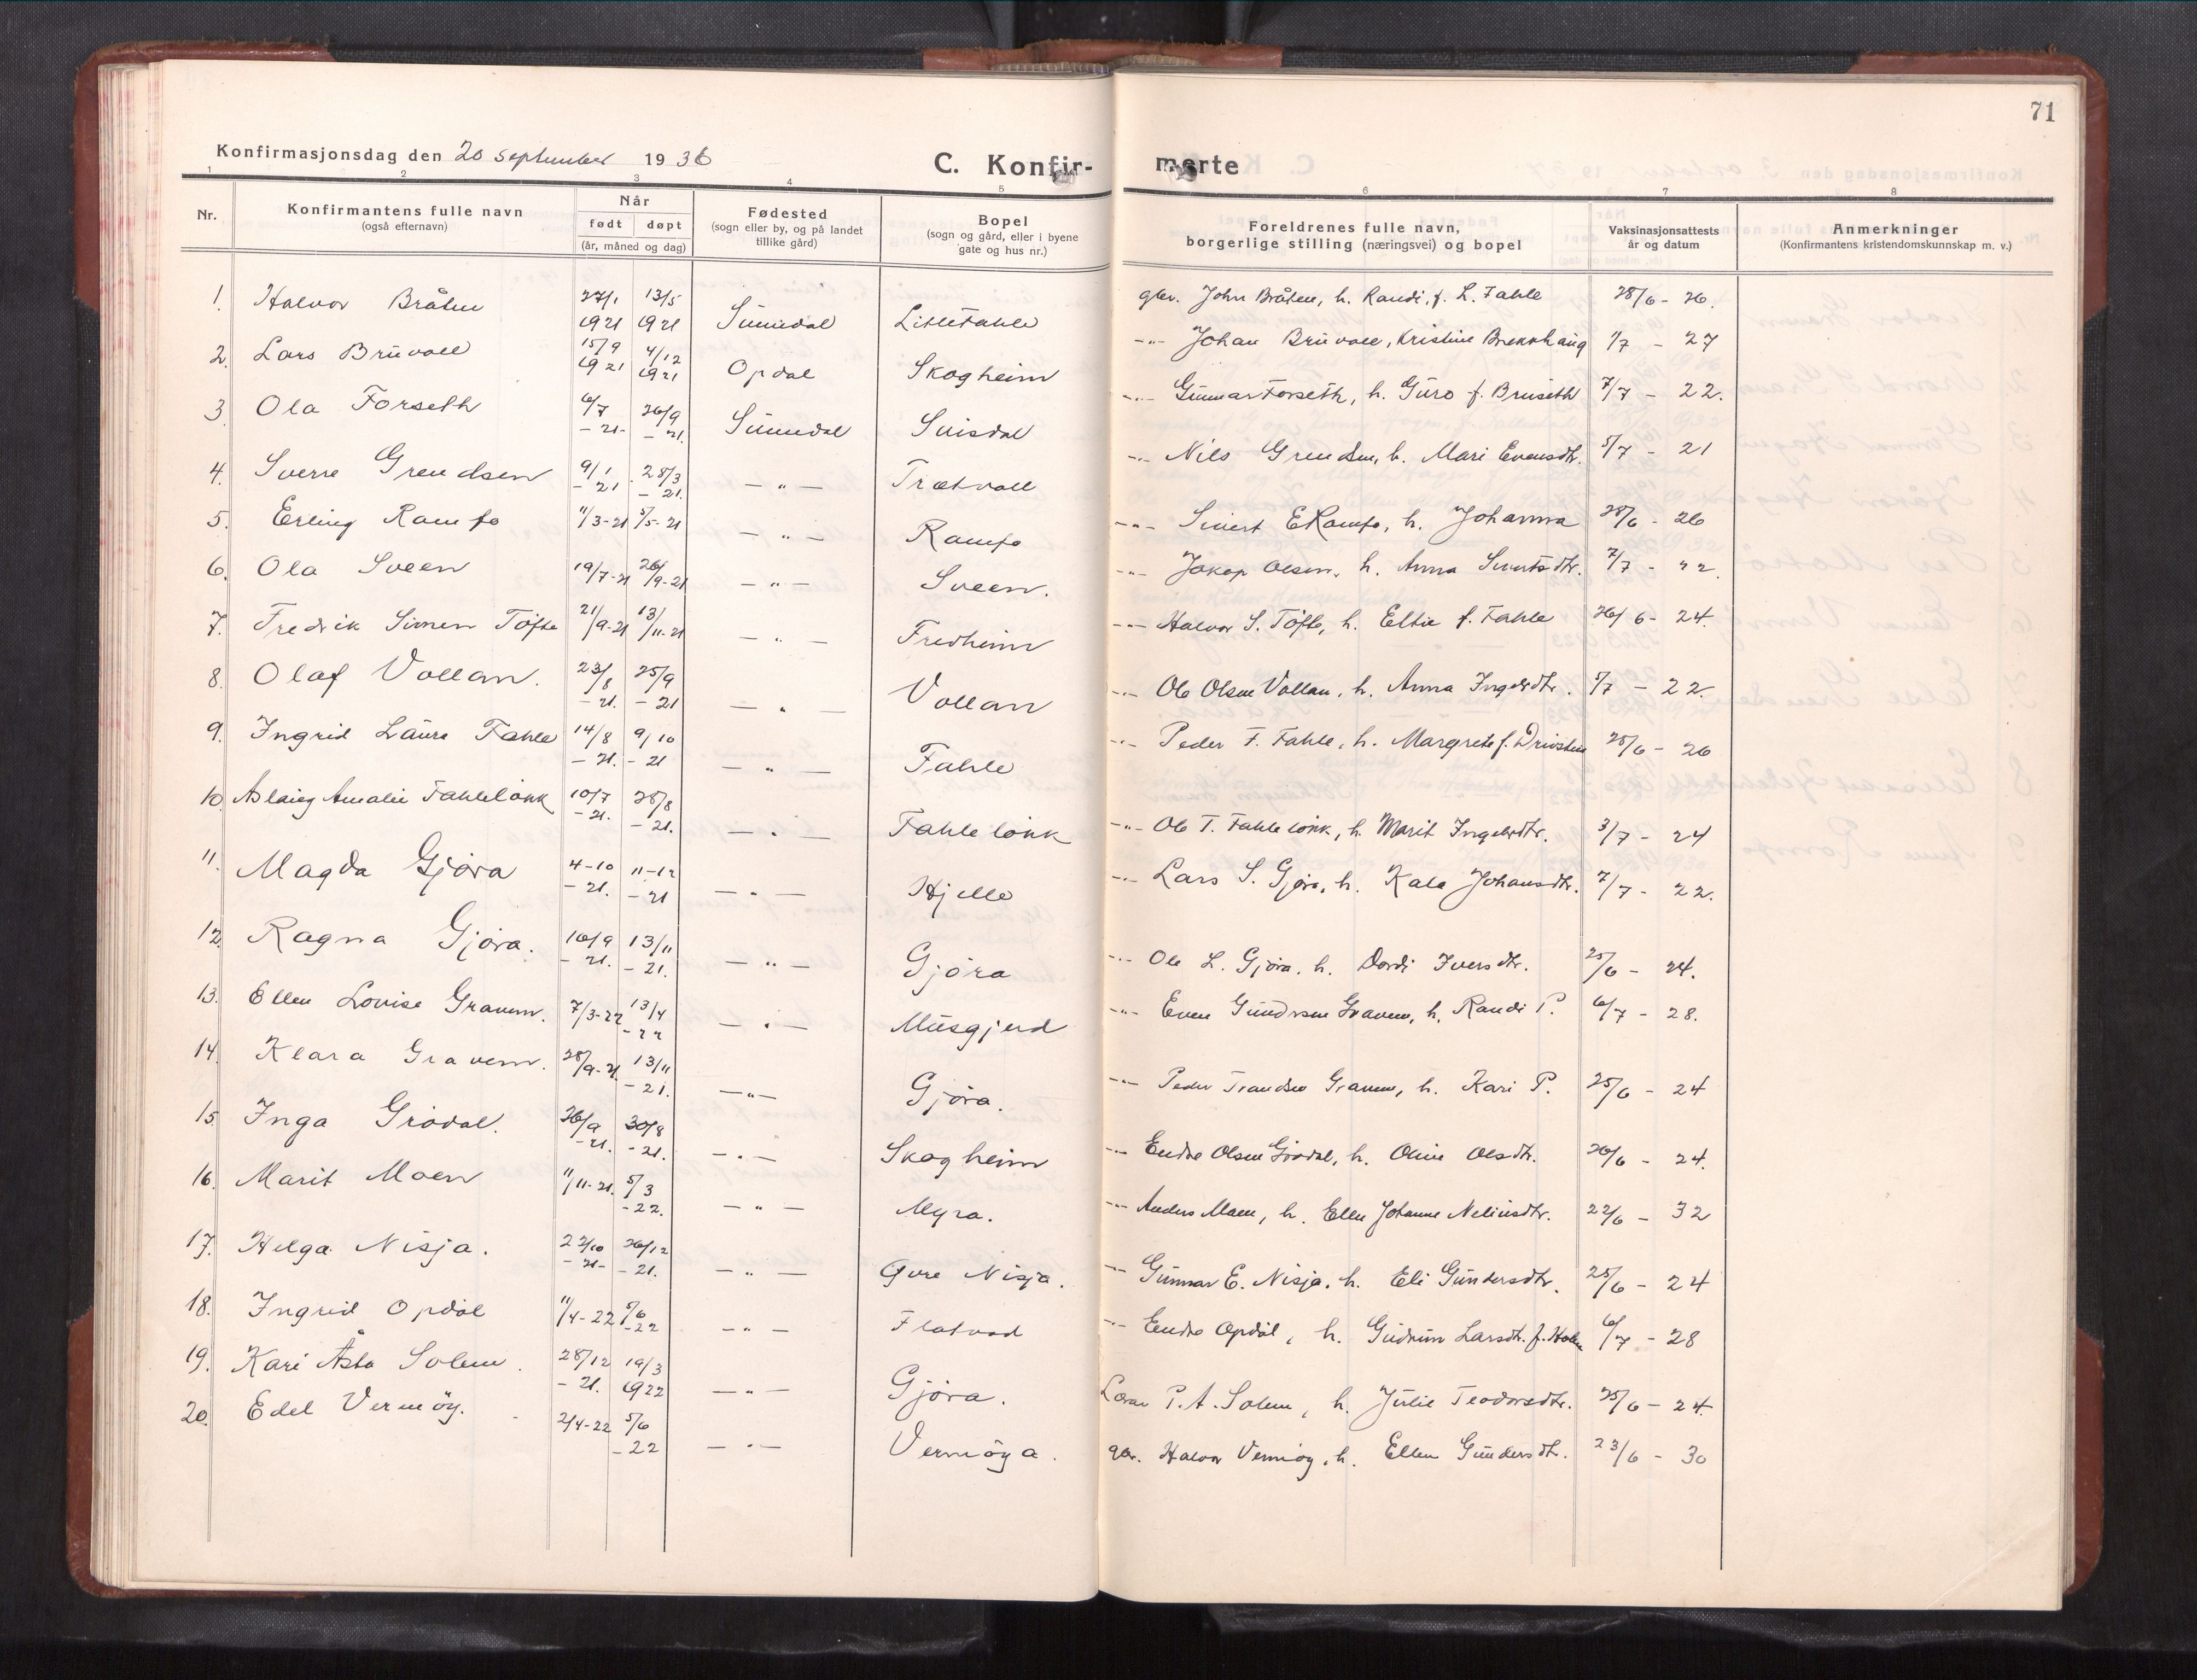 71
Konfirmasjonsdag den 20 september 1936
C. Konfir- merte
1 2 3 4 5 6 7 8
Nr.
Konfirmantens fulle navn
(også efternavn)
Når
født døpt
(år, måned og dag)
Fødested
(sogn eller by, og på landet
tillike gård)
Bopel
(sogn og gård, eller i byene
gate og hus nr.)
Foreldrenes fulle navn,
borgerlige stilling (næringsvei) og bopel
Vaksinasjonsattests
år og datum
Anmerkninger
(Konfirmantens kristendomskunnskap m. v.)
1. Halvor Bråten 27/1 1921 13/5 1921 Sunndal Litlefahle gbr. John Bråten, h. Randi, f. L. Fahle 28/6 - 26.
2. Lars Bruvoll 15/9 1921 4/12 1921 Opdal Skogheim -"- Johan Bruvoll, Kristine Brekkhaug 1/7 - 27
3. Ola Forseth 6/7 - 21- 26/9 - 21. Sunndal Svisdal -"- Gunnar Forseth, h. Guro f. Bruseth 7/7 - 22.
4. Sverre Grendsen 9/1 - 21 28/3 - 21. -"- Trætvoll -"- Nils Grendsen, h. Mari Evensdtr. 5/7 - 21
5. Erling Romfo 11/3-21 5/5-21 -"- Romfo -"- Sivert E Romfo, h. Johanna 28/6 - 26
6. Ola Sveen 19/7-21 26/9-21 -"- Sveen. -"- Jakop Olsen, h. Anna Sivertsdtr. 7/7 - 22.
7. Fredrik Simen Tøfte 21/9-21 13/11-21 -"- Fredheim -"- Halvor S. Tøfte, h. f. Fahle 26/6 - 24.
8. Olaf Vollan. 23/8 - 21. 25/9 - 21 -"- Vollan -"- Ole Olsen Vollan, h. Anna Ingebrdtr. 5/7 - 22.
9. Ingrid Laura Fahle 14/8 - 21. 9/10 - 21 -"- Fahle -"- Peder F. Fahle, h. Margrete f. 25/6 - 26
10. Aslaug Amalie Fahleløkk 10/7 - 21. 28/8 - 21. -"- Fahleløkk -"- Ole T. Fahleløkk, h. Marit Ingebrdtr. 3/7 - 24
11. Magda Gjøra 4-10 - 21. 11-12 - 21 -"- Hjelle -"- Lars S. Gjøra, h. Johansdtr. 7/7 - 22.
12. Ragna Gjøra. 16/9 - 21. 13/11 - 21. -"- Gjøra -"- Ole L. Gjøra, h. Dordi Iversdtr. 25/6 - 24.
13. Ellen Lovise Gravem. 7/3-22 13/4 - 22 -"- Musgjerd -"- Even Gundersen Gravem, h. Randi P. 6/7 - 28.
14. Klara Gravem. 28/9-21. 13/11 - 21. -"- Gjøra. -"- Peder Gravem, h. Kari P. 25/6 - 24
15. Inga Grødal. 26/9 - 21. 30/8 - 21. -"- Skogheim -"- Endre Olsen Grødal, h. Oline Olsdtr. 26/6 - 24.
16. Marit Moen 11/11-21. 5/3 - 22. -"- Myra. -"- Anders Moen, h. Ellen Johanne Neliusdtr. 22/6 - 32
17. Helga Nisja. 22/10 - 21- 26/12 - 21. -"- Øvre Nisja. -"- Gunnar E. Nisja, h. Eli Gundersdtr. 25/6 - 24
18. Ingrid Opdøl 11/4-22 5/6 -22 -"- Flatvad -"- Endre Opdøl, h. Gudrun Larsdtr. f. Holm 6/7 - 28
19. Kari Åsta Solem. 28/12 - 21. 19/3 1922 -"- Gjøra. Lærer P. A. Solem, h. Julie Teodorsdtr. 25/6 - 24.
20. Edel Vermøy. 2/4-22 5/6 - 22 -"- Vermøya. gbr. Halvor Vermøy, h. Ellen Gundersdtr. 23/6 - 30